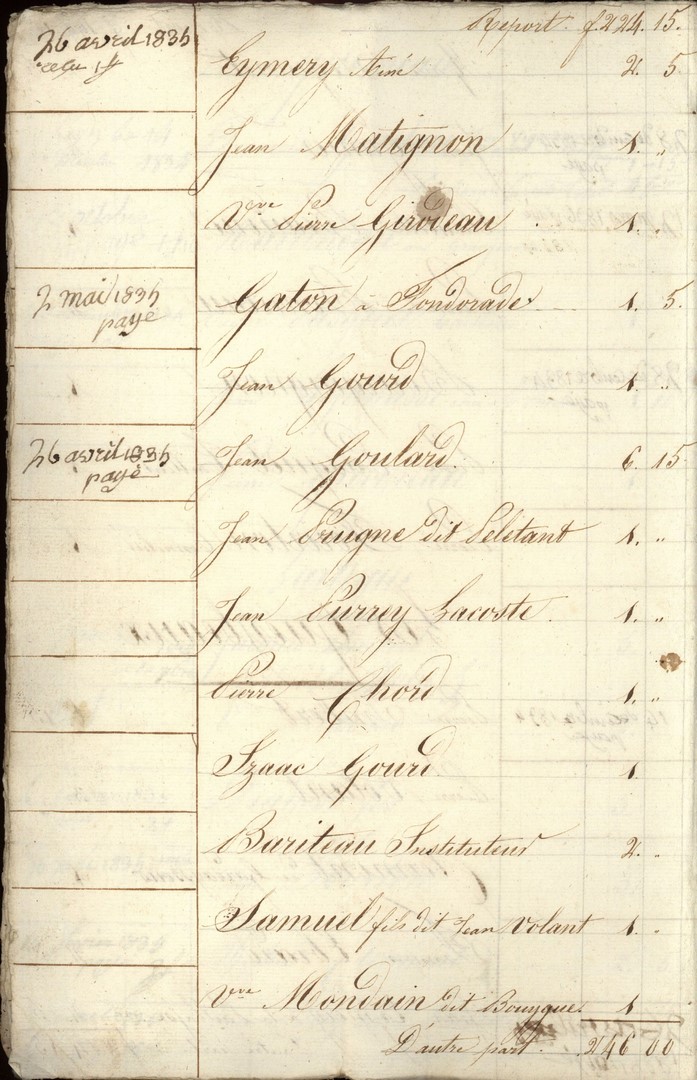 Report. f. 224. 15.
26 avril 1835
reçu 1f
Eymery Aîné 2. 5
Jean Matignon 1. "
Vve Pierre Girodeau . 1. "
2 mai 1835
payé
Gaton à Fondorade 1. 5.
Jean Gourd 1. "
26 avril 1835
payé
Jean Goulard. 6. 15
Jean Prugne dit Peletant 1. "
Jean Purrey Lacoste. 1. "
Pierre Chord 1. "
Izaac Gourd 1
Bariteau Instituteur 2. "
Samuel fils dit Jean Volant 1. "
Vve Mondain dit Bouyque. 1
D'autre part. 246 00